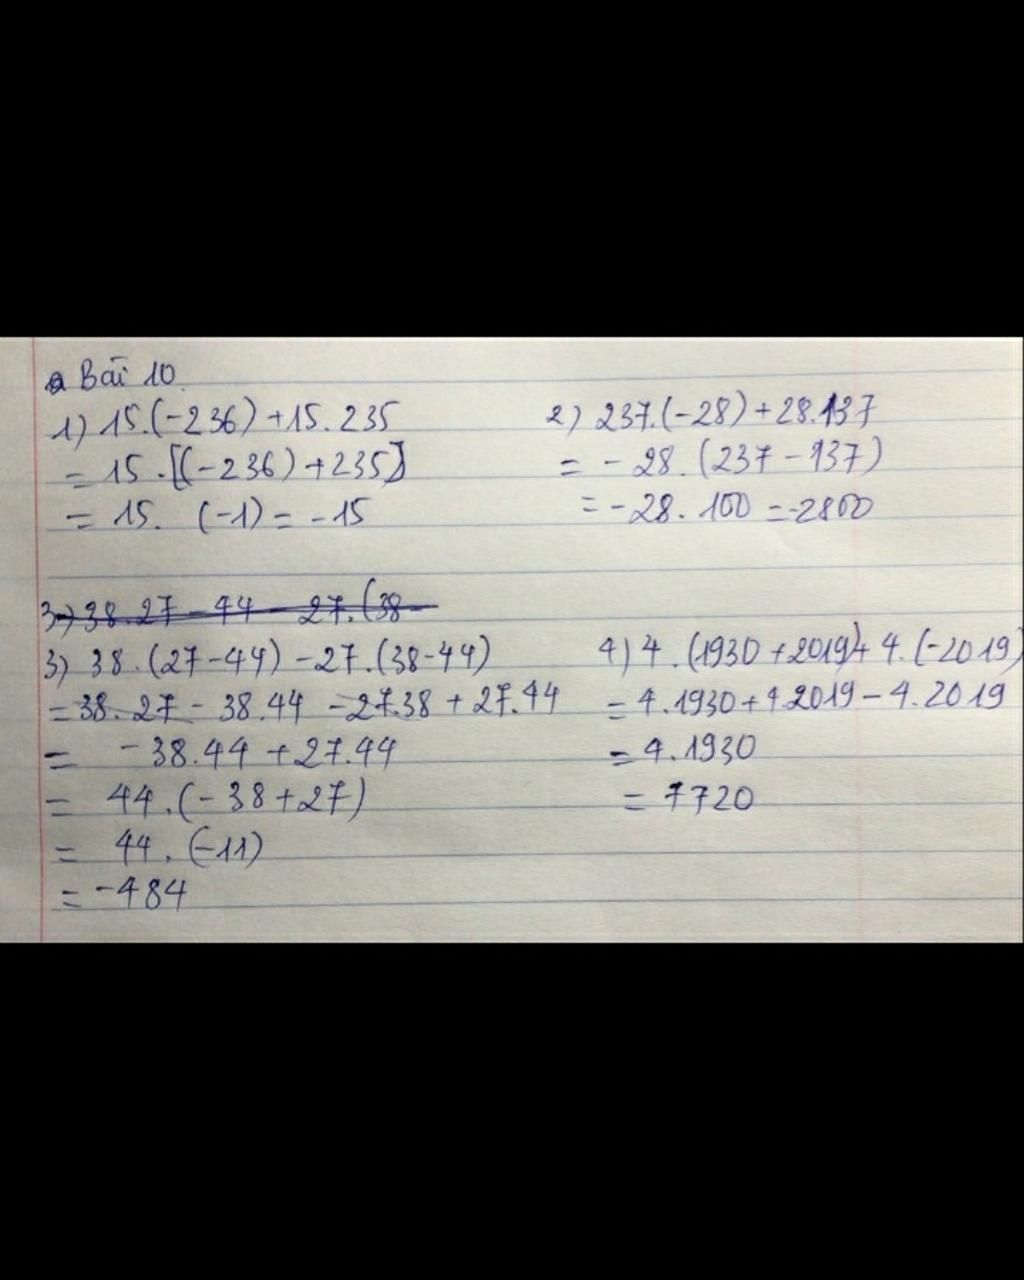 Bài 10
1) 15.(-236)+15.235
= 15.[(-236)+235]
= 15. (-1) = -15
2) 237.(-28)+28.137
= -28.(237-137)
= -28.100 = -2800
3) 38.27-44 27.(38-
3) 38.(27-44)-27.(38-44)
=38.27-38.44 -27.38+27.44
= -38.44+27.44
= 44.(-38+27)
= 44.(-11)
= -484
4) 4.(1930+2019)+4.(-2019)
= 4.1930+4.2019-4.2019
= 4.1930
= 7720